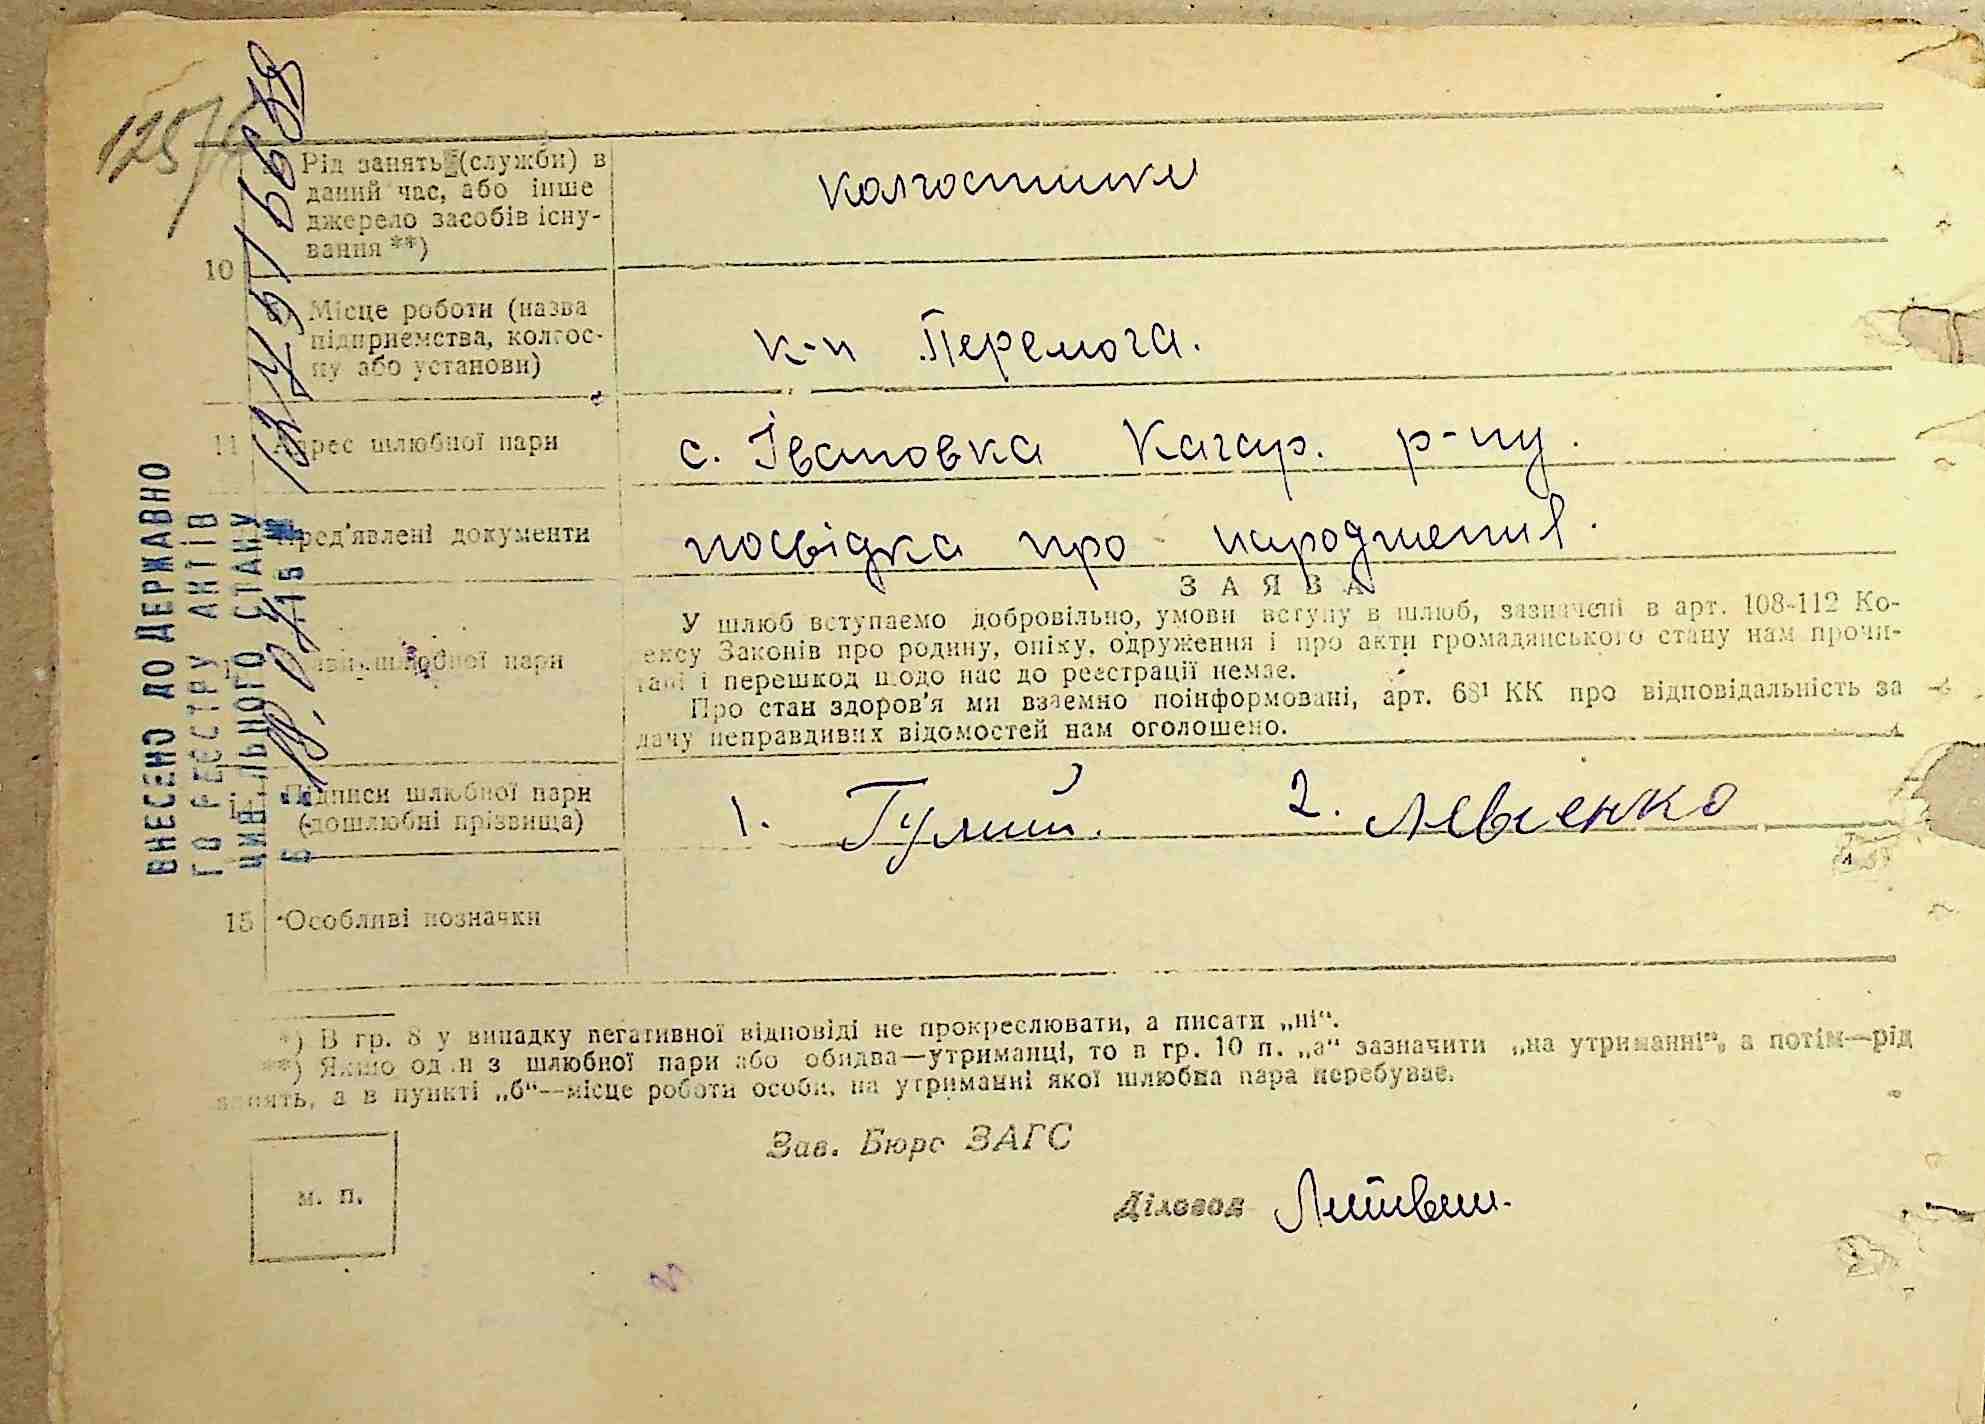 125
Рід занять (служби) в
даний час, або інше
джерело засобів існу-
вання **)
колгоспники
10
Місце роботи (назва
підприємства, колгос-
пу або установи)
к-п Перемога.
11 Адрес шлюбної пари
с. Івановка Кагар. р-ну.
Пред'явлені документи
посвідка про народження.
ЗАЯВА
У шлюб вступаємо добровільно, умови вступу в шлюб, зазначені в арт. 108-112 Ко-
ексу Законів про родину, опіку, одруження і про акти громадянського стану нам прочи-
тані і перешкод щодо нас до реєстрації немає.
Про стан здоров'я ми взаємно поінформовані, арт. 68¹ КК про відповідальність за
дачу неправдивих відомостей нам оголошено.
шлюбної пари
Підписи шлюбної пари
(дошлюбні прізвища)
1. Гулий. 2. Левченко
15 Особливі позначки
*) В гр. 8 у випадку негативної відповіді не прокреслювати, а писати „ні“.
**) Якщо один з шлюбної пари або обидва—утриманці, то в гр. 10 п. „а“ зазначити „на утриманні“, а потім—рід
занять, а в пункті „б“—місце роботи особи, на утриманні якої шлюбна пара перебуває.
Зав. Бюро ЗАГС
м. п.
Діловод Литвин.
ВНЕСЕНО ДО ДЕРЖАВНО
ГО РЕЄСТРУ АКТІВ
ЦИВІЛЬНОГО СТАНУ